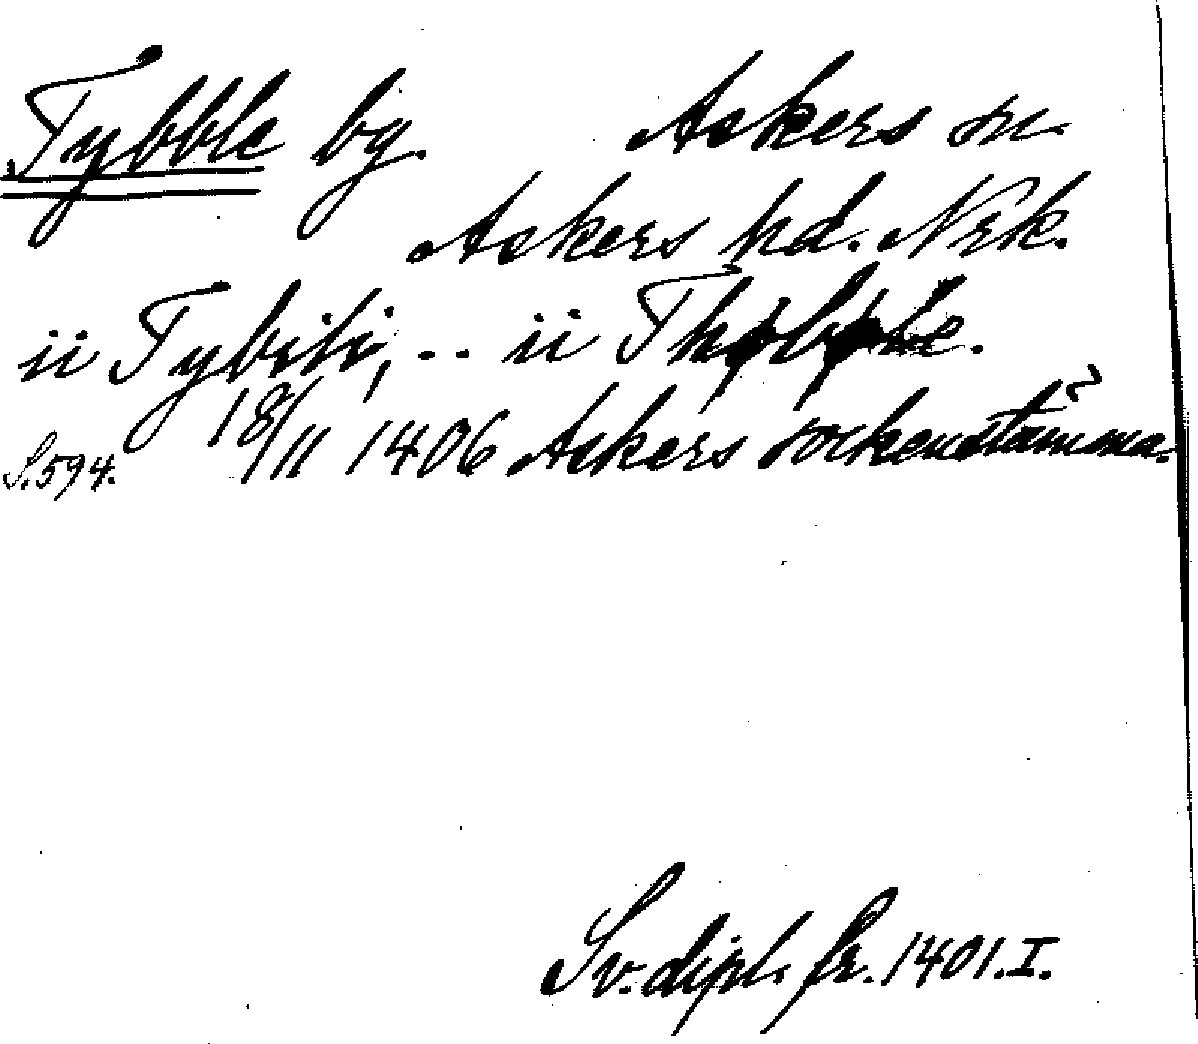 Tybble by. Askers sn.
Askers hd. Nrk.
ii Tybili, .. ii Thøbøle.
S. 594. 18/11 1406 Askers sockenstämma.
Sv. dipl. fr. 1401. I.